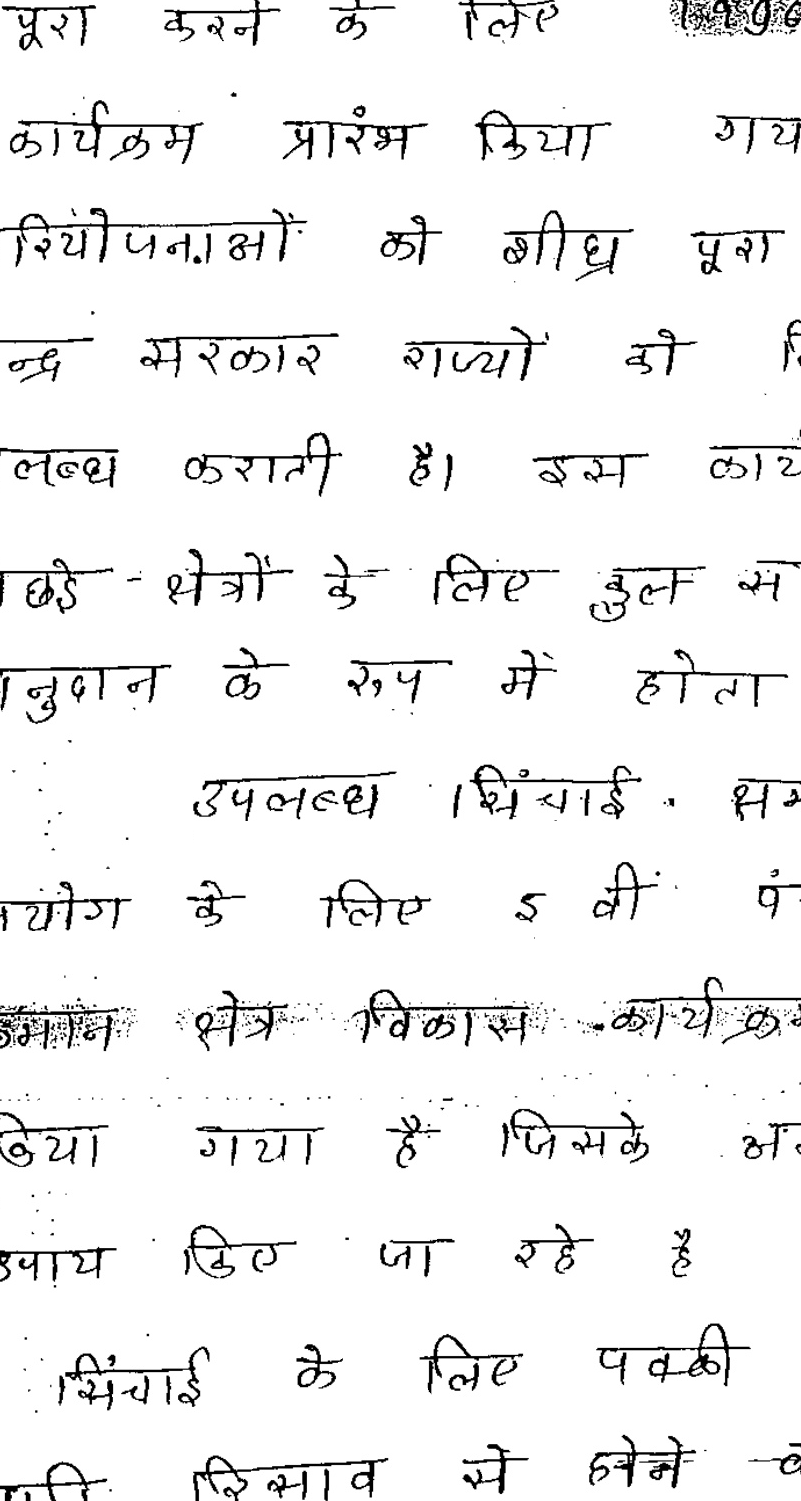 पूरा करने के लिए 1996
कार्यक्रम प्रारंभ किया गय
रियोजनाओं को शीघ्र पूरा
न्द्र सरकार राज्यों को
लब्ध कराती है। इस कार्य
छडे - क्षेत्रों के लिए कुल स
नुदान के रुप में होता
उपलब्ध सिंचाई सम
योग के लिए 5 वीं पं
मान क्षेत्र विकास कार्यक्रम
किया गया है जिसके अन
उपाय किए जा रहे है
सिंचाई के लिए पक्की
रिसाव से होने